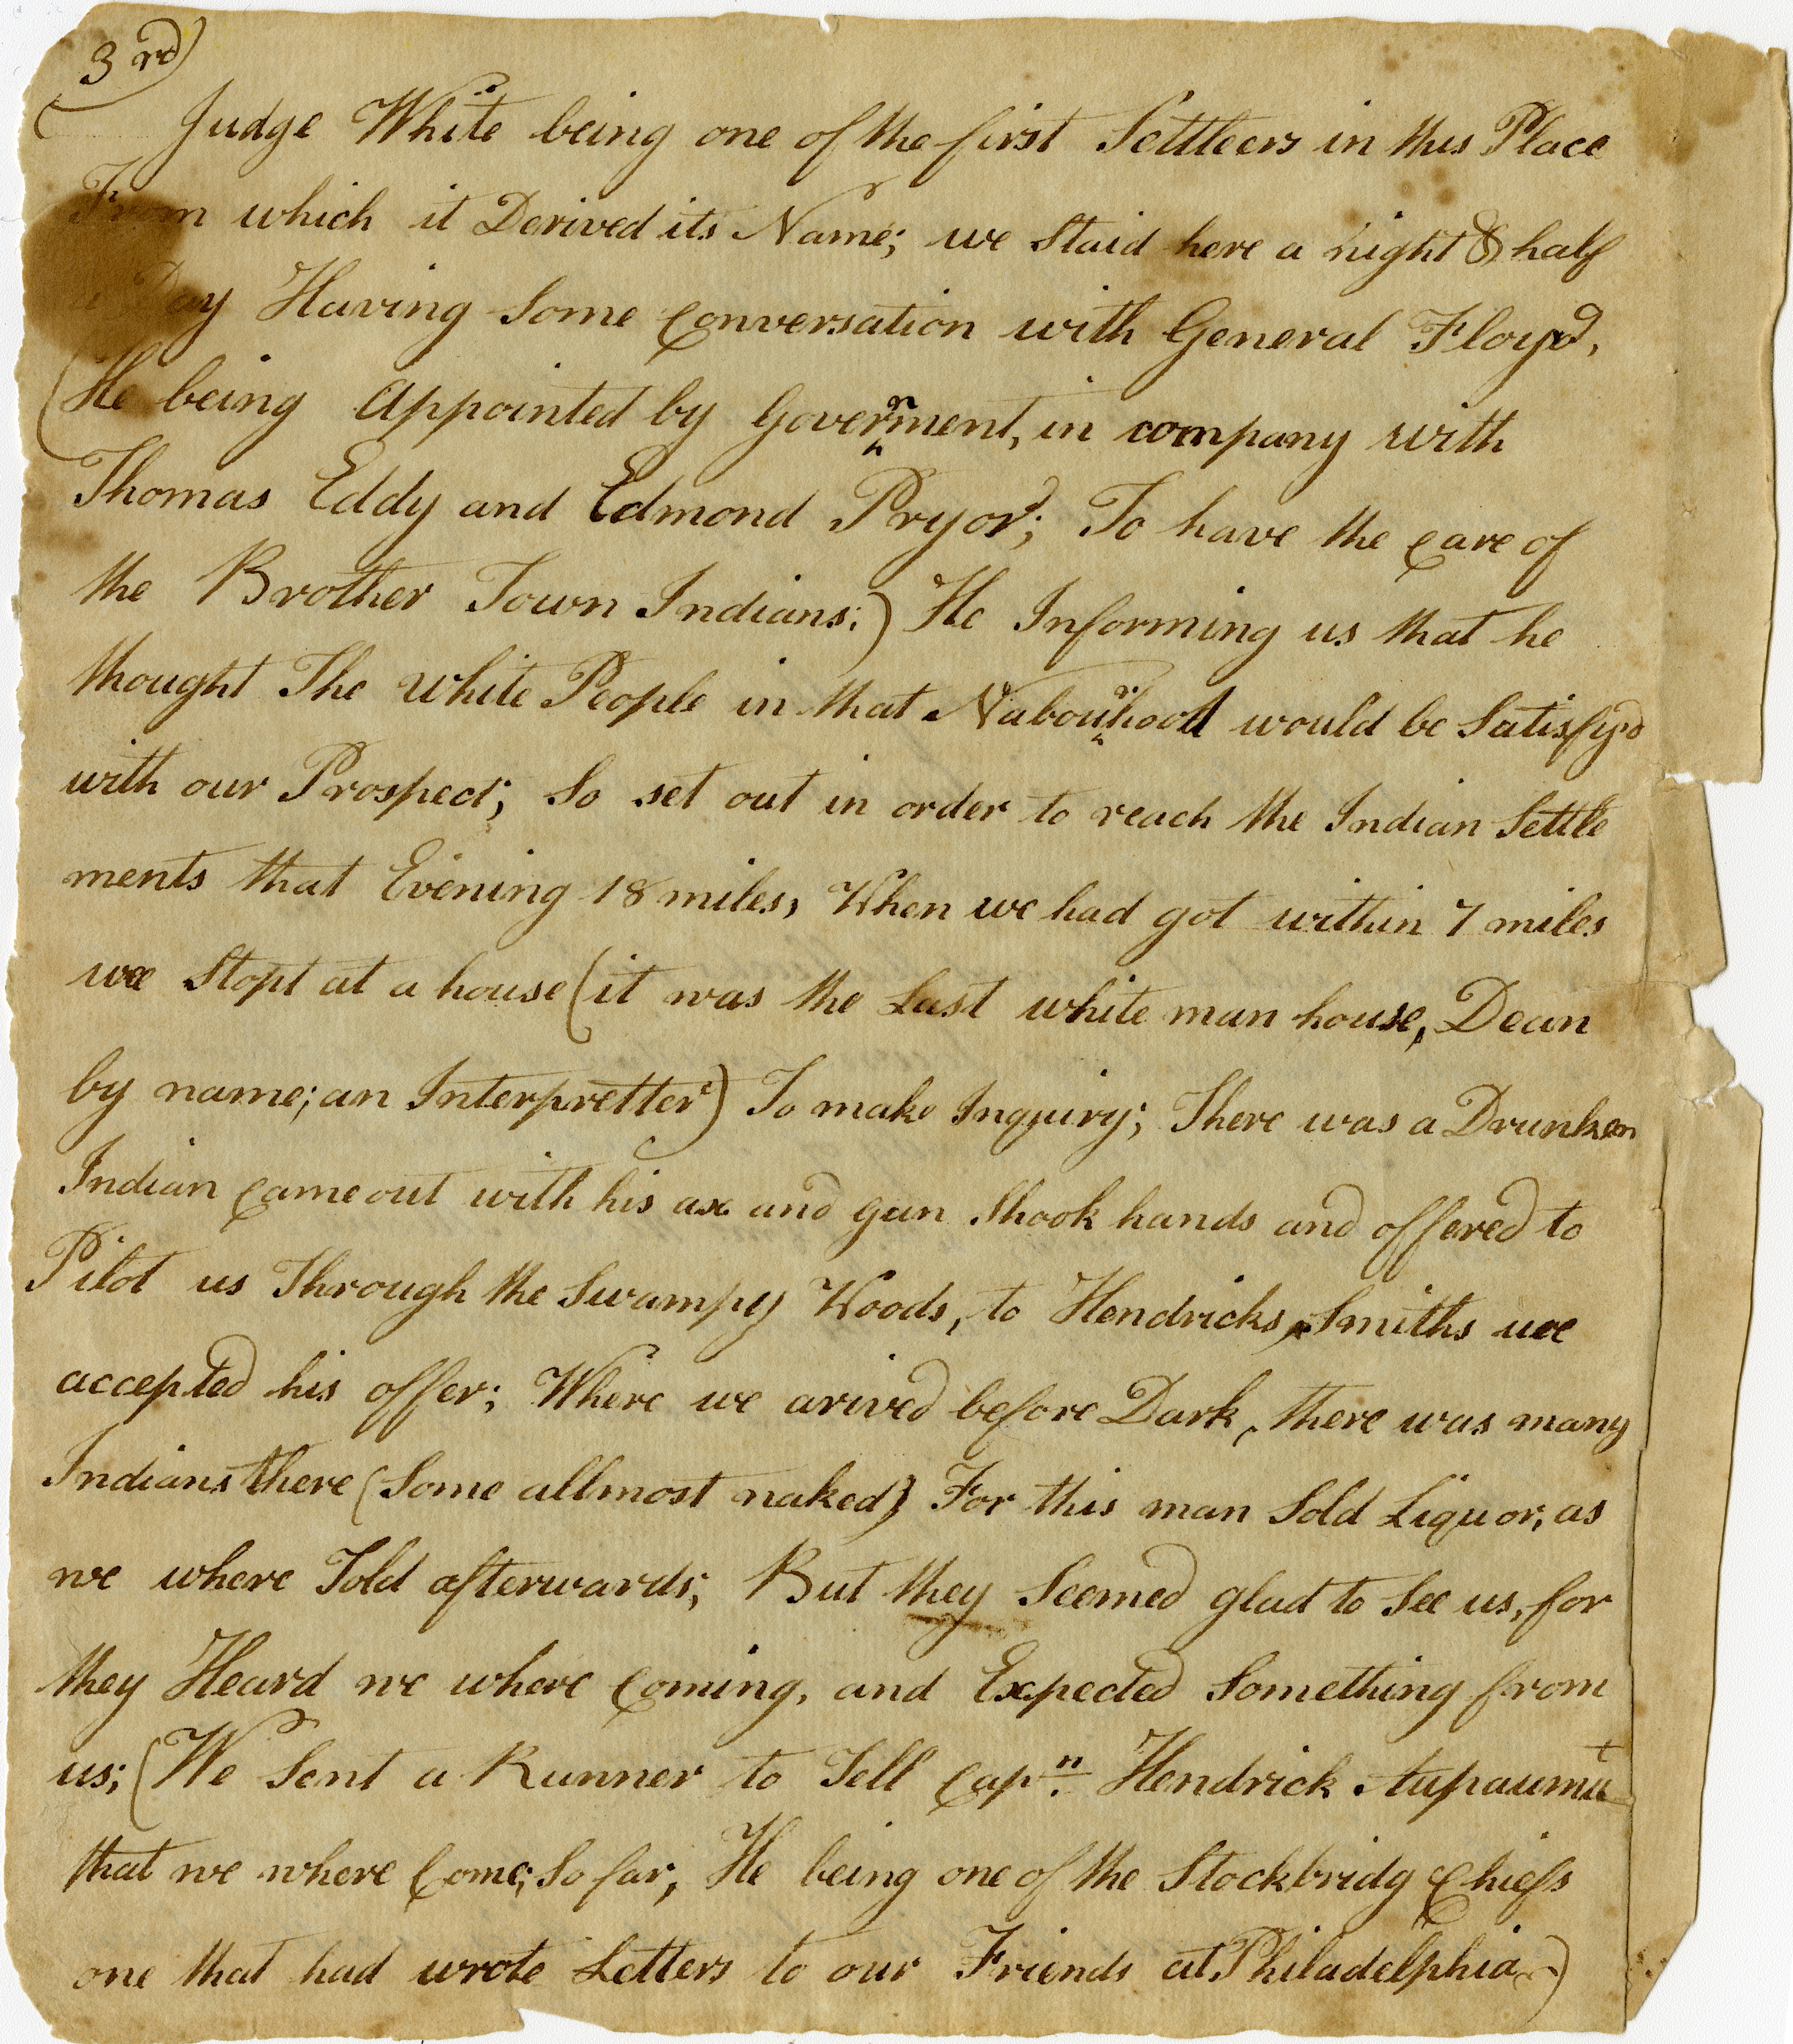 3rd)
Judge White being one of the first Settleers in this Place
From which it Derived its Name; we Staid here a night & half
a Day Having Some Conversation with General Floyd,
(He being Appointed by Government, in company with
Thomas Eddy and Edmond Pryor; To have the Care of
the Brother Town Indians;) He Informing us that he
thought The White People in that Nabourhood would be Satisfyd
with our Prospect; So set out in order to reach the Indian Settle
ments that Evening 18 miles, When we had got within 7 miles
we Stopt at a house (it was the Last white man house, Dean
by name; an Interpretter) To make Inquiry; There was a Drunken
Indian Came out with his ax and gun Shook hands and offered to
Pilot us Through the Swampy Woods, to Hendricks Smiths we
accepted his offer; Where we arived before Dark, there was many
Indians there (Some allmost naked) For this man Sold Liquor, as
we where Told afterwards; But they Seemed glad to See us, for
they Heard we where Coming, and Expected Something from
us; (We Sent a Runner to Tell Capn. Hendrick Aupaumut
that we where Come; So far, He being one of the Stockbridg Chiefs
one that had wrote Letters to our Friends at Philadelphia)